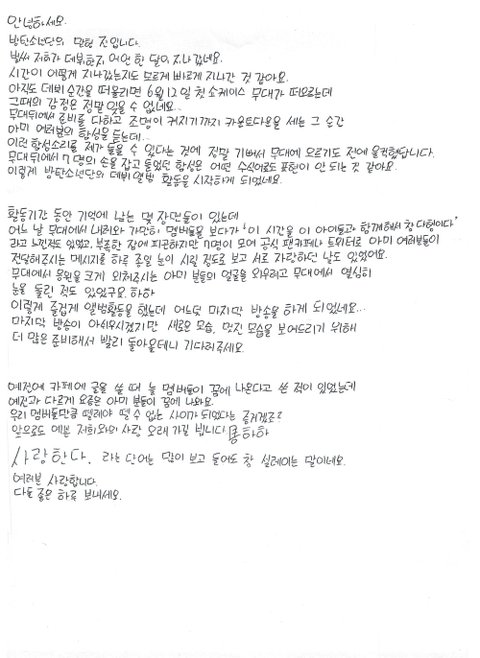 안녕하세요.
방탄소년단의 맏형 진입니다.
벌써 저희가 데뷔한지 어언 한 달이 지나갔네요.
시간이 어떻게 지나갔는지도 모르게 빠르게 지나간 것 같아요.
아직도 데뷔 순간을 떠올리면 6월 12일 첫 쇼케이스 무대가 떠오르는데
그때의 감정은 정말 잊을 수 없네요..
무대뒤에서 준비를 다하고 조명이 켜지기까지 카운트다운을 세는 그 순간
아미 여러분의 함성을 듣는데...
이런 함성소리를 제가 들을 수 있다는 것에 정말 기뻐서 무대에 오르기도 전에 울컥했답니다.
무대뒤에서 7명의 손을 잡고 들었던 함성은 어떤 수식어로도 표현이 안 되는 것 같아요.
이렇게 방탄소년단의 데뷔앨범 활동을 시작하게 되었네요.
활동기간 동안 기억에 남는 몇 장면들이 있는데
어느 날 무대에서 내려와 가만히 멤버들을 보다가 '이 시간을 이 아이들과 함께해서 참 다행이다'
라고 느낀적도 있었고, 부족한 잠에 피곤하지만 7명이 모여 공식 팬카페나 트위터로 아미 여러분들이
전달해주시는 메시지를 하루 종일 눈이 시릴 정도로 보고 서로 자랑하던 날도 있었어요.
무대에서 응원을 크게 외쳐주시는 아미 분들의 얼굴을 외우려고 무대에서 열심히
눈을 돌린 적도 있었구요. 하하
이렇게 즐겁게 앨범활동을 했는데 어느덧 마지막 방송을 하게 되었네요...
마지막 방송이 아쉬우시겠지만 새로운 모습, 멋진 모습을 보여드리기 위해
더 많은 준비해서 빨리 돌아올테니 기다려주세요.
예전에 카페에 글을 쓸 때 늘 멤버들이 꿈에 나온다고 쓴 적이 있었는데
예전과 다르게 요즘은 아미 분들이 꿈에 나와요.
우리 멤버들만큼 뗄레야 뗄 수 없는 사이가 되었다는 증거겠죠?
앞으로도 예쁜 저희와의 사랑 오래 가길 빕니다! 롱하하
사랑한다. 라는 단어는 많이 보고 들어도 참 설레이는 말이네요.
여러분 사랑합니다.
다들 좋은 하루 보내세요.